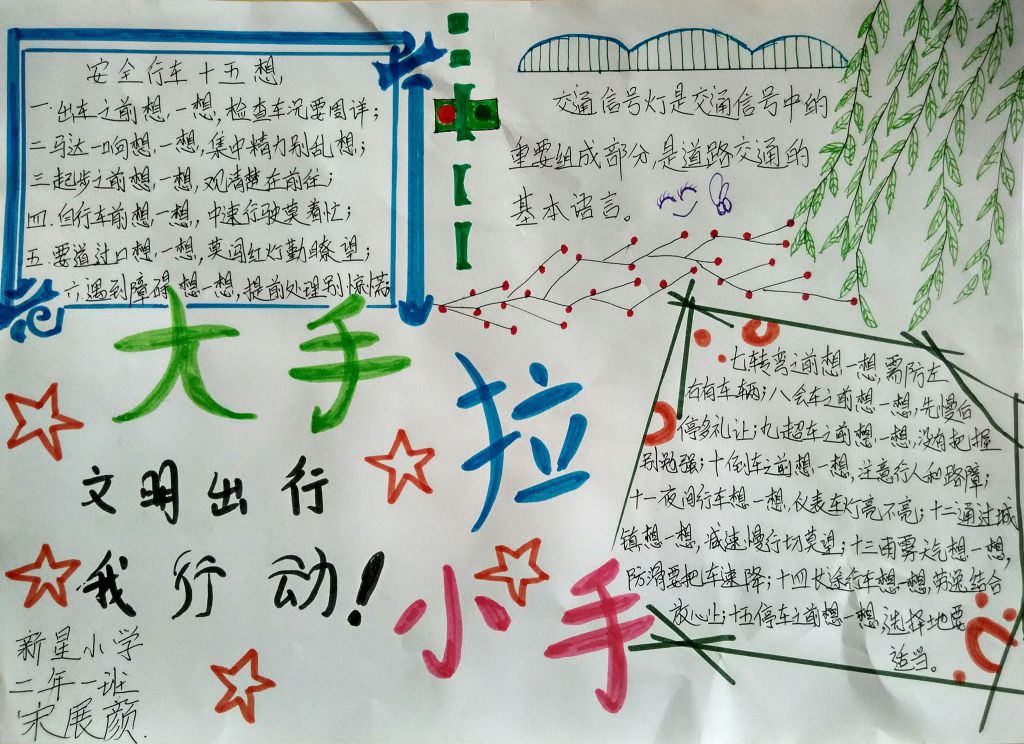 安全行车十五想
一.出车之前想一想,检查车况要周详;
二马达一响想一想,集中精力别乱想;
三起步之前想一想,观清楚在前往;
四.自行车前想一想,中速行驶莫着忙;
五要道过口想一想,莫闯红灯勤瞭望;
六遇到障碍想一想,提前处理别惊慌
交通信号灯是交通信号中的
重要组成部分,是道路交通的
基本语言。
大手
拉
小手
文明出行
我行动!
七转弯之前想一想,需防左
右有车辆;八会车之前想一想,先慢后
停多礼让;九超车之前想一想,没有把握
别勉强;十倒车之前想一想,注意行人和路障;
十一夜间行车想一想,仪表车灯亮不亮;十二通过城
镇想一想,减速慢行切莫望;十三雨雾天气想一想,
防滑要把车速降;十四长途行车想一想,劳逸结合
放心上;十五停车之前想一想选择地要
适当。
新星小学
二年一班
宋展颜.